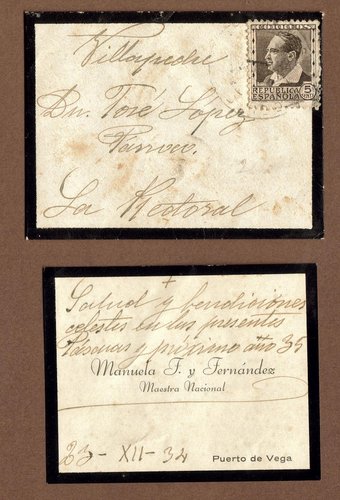 Villapedre
CORREOS
5
CTS
REPUBLICA
ESPAÑOLA
Dn. José López
Párroco
La Rectoral
+
Salud y bendiciones
celestes en las presentes
Pascuas y próximo año 35
Manuela F. y Fernández
Maestra Nacional
23- XII- 34
Puerto de Vega